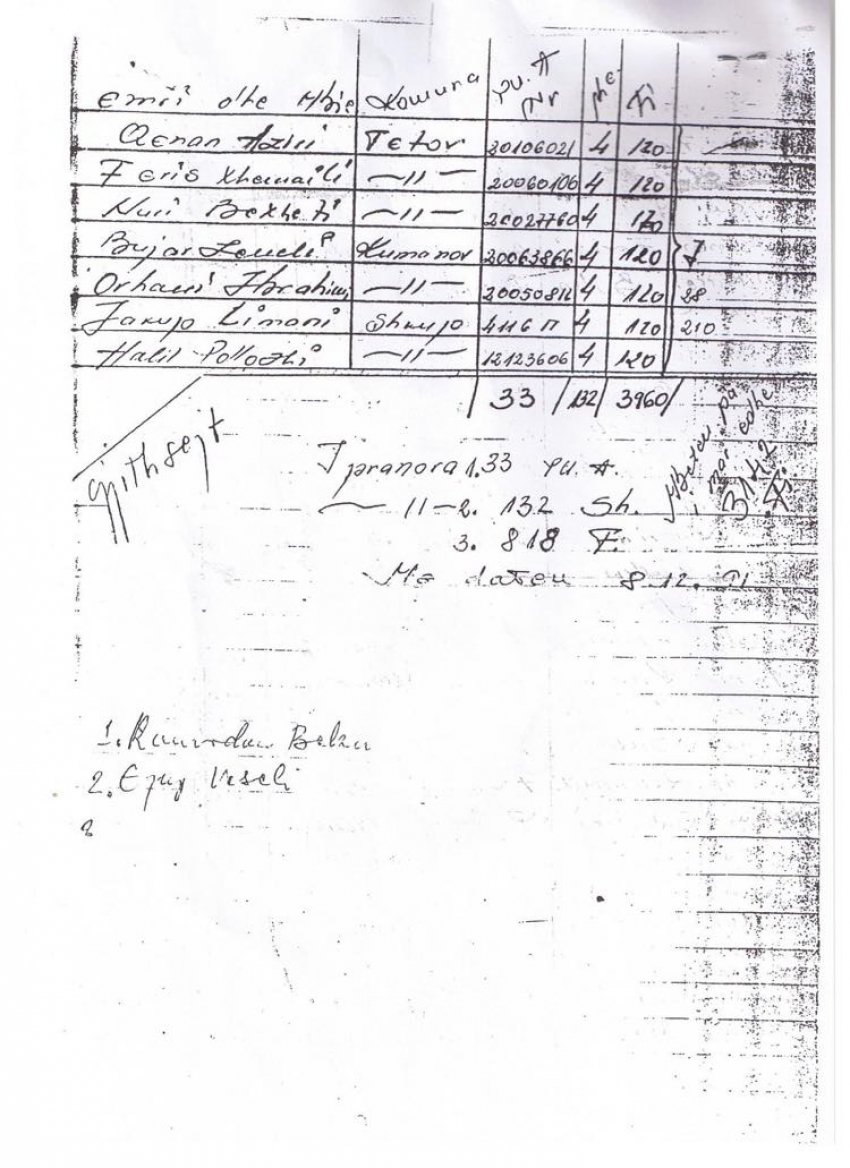 Emri dhe Mbie Komuna pu. A Nr She. F
Adnan Haziri Tetov 20106021 4 120
Feris Xhemaili —11— 20060106 4 120
Nuri Bexheti —11— 20027760 4 120
Bujar Kumanov 20063866 4 120
Orhani Ibrahimi —11— 2005081 4 120 28
Jakup Limani Shkup 4116 4 120 210
Halil Pollozhi —11— 12123606 4 120
33 132 3960
gjithsejt
I pranova 1. 33 pu. A.
—11— 2. 132 Sh.
3. 818 F.
Me daten 8.12.91
Mbeten pa
i mar edhe
3142
F.
1. Ramadan
2. Veseli